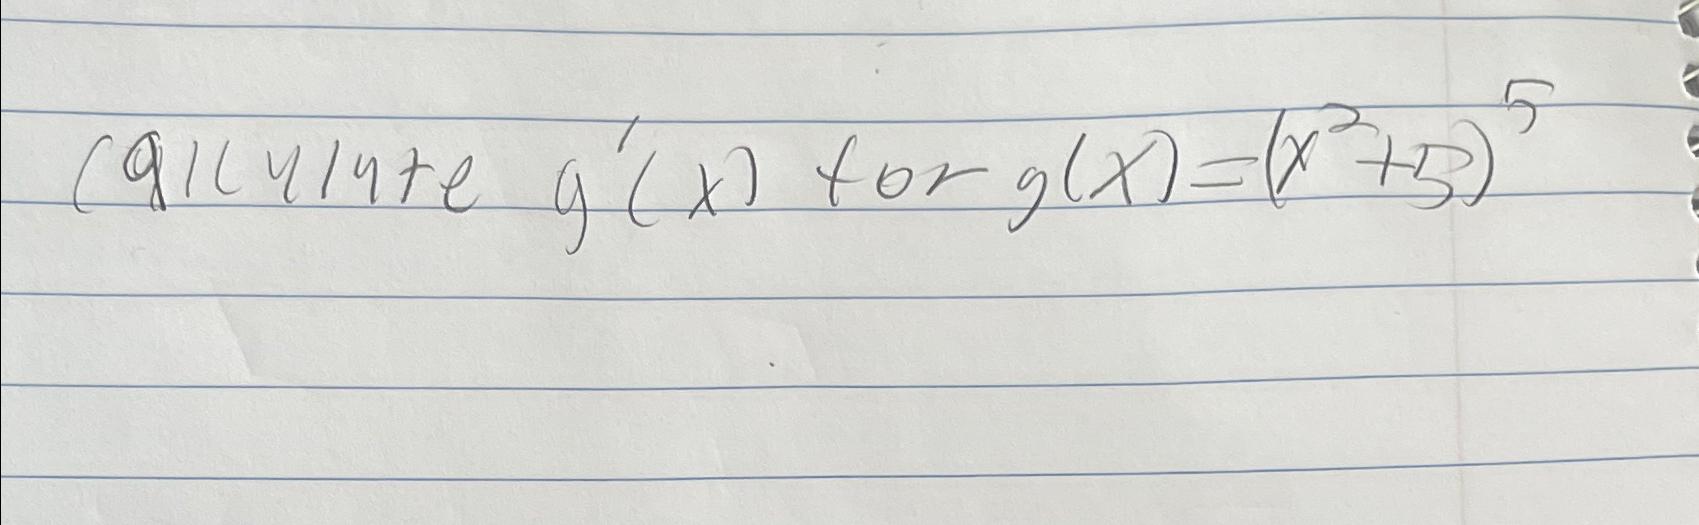 Calculate g'(x) for g(x)=(x²+5)⁵